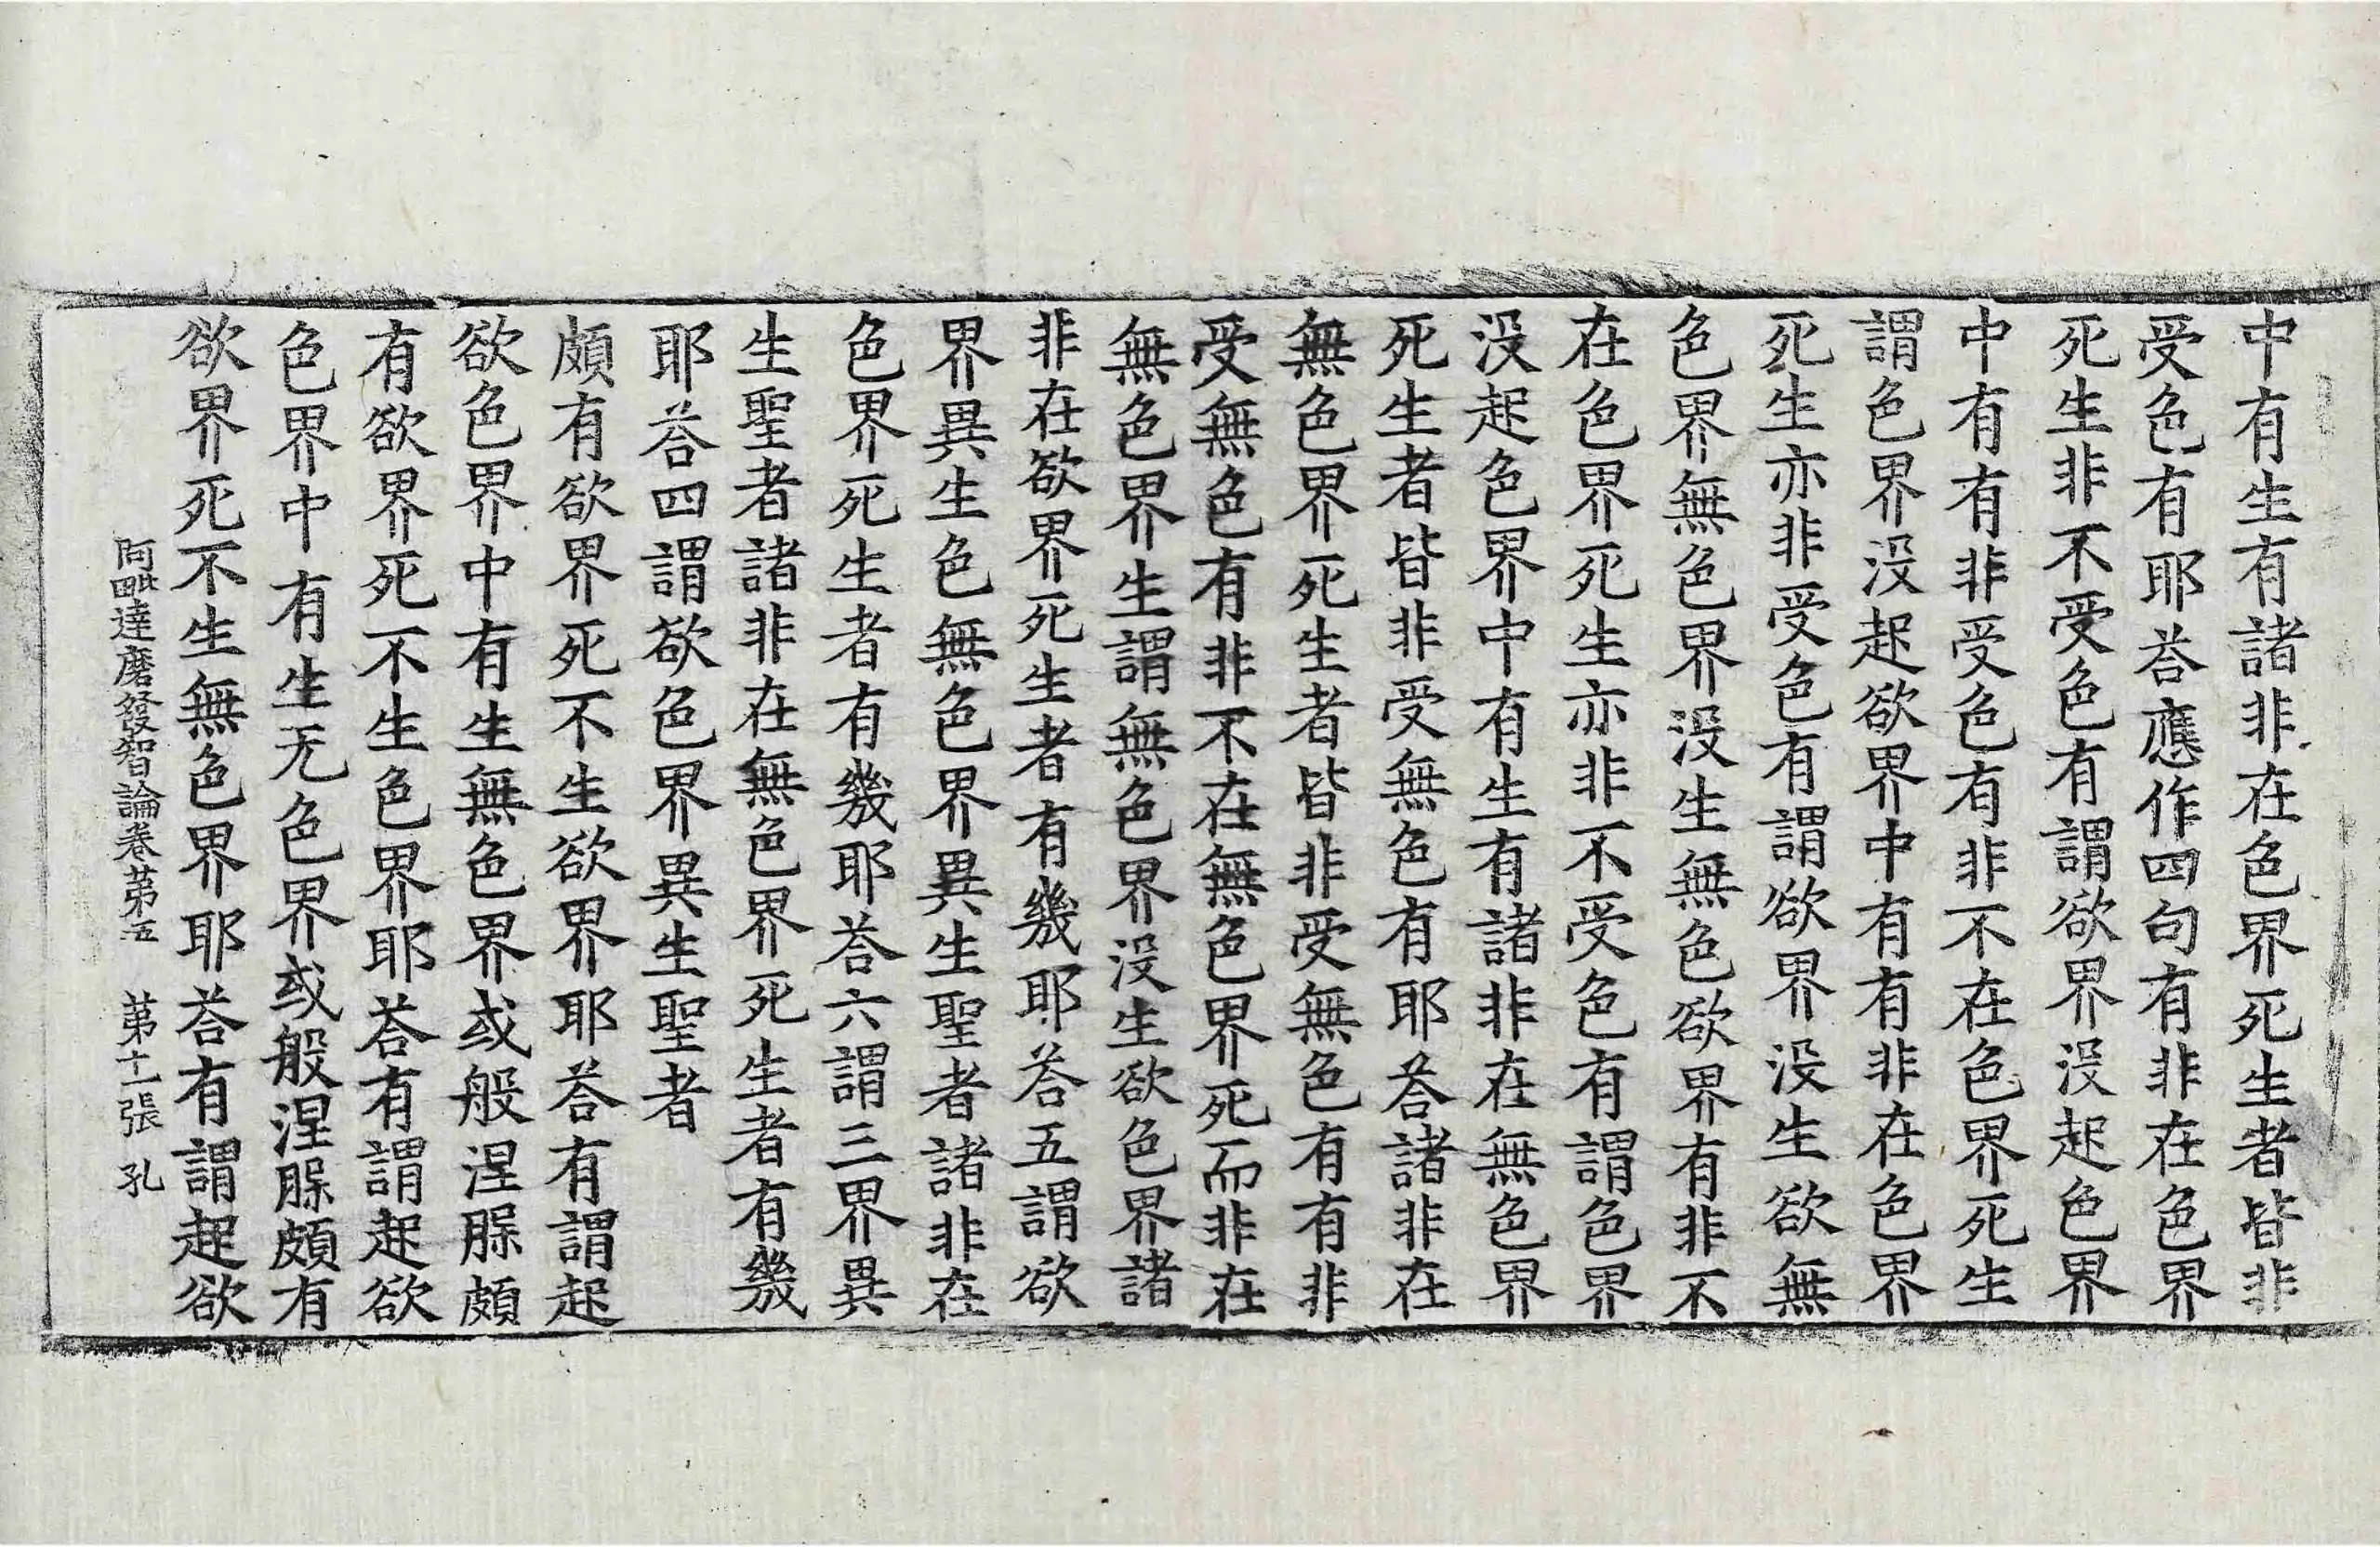 中有生有諸非在色界死生者皆非
受色有耶荅應作四句有非在色界
死生非不受色有謂欲界没起色界
中有有非受色有非不在色界死生
謂色界没起欲界中有有非在色界
死生亦非受色有謂欲界没生欲無
色界無色界没生無色欲界有非不
在色界死生亦非不受色有謂色界
没起色界中有生有諸非在無色界
死生者皆非受無色有耶荅諸非在
無色界死生者皆非受無色有有非
受無色有非不在無色界死而非在
無色界生謂無色界没生欲色界諸
非在欲界死生者有幾耶荅五謂欲
界異生色無色界異生聖者諸非在
色界死生者有幾耶荅六謂三界異
生聖者諸非在無色界死生者有幾
耶荅四謂欲色界異生聖者
頗有欲界死不生欲界耶荅有謂起
欲色界中有生無色界或般涅脲頗
有欲界死不生色界耶荅有謂起欲
色界中有生无色界或般涅脲頗有
欲界死不生無色界耶荅有謂起欲
阿毗達磨發智論卷苐五 苐十一張 孔